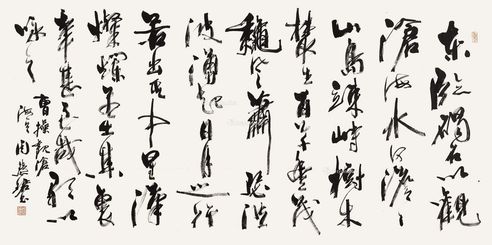 東臨碣石以觀
滄海水何澹々
山島竦峙樹木
叢生百草豐茂
秋風蕭瑟洪
波湧起日月之行
若出其中星漢
燦爛若出其裏
幸甚至哉歌以
咏志
曹操觀滄
海 周慧珺書